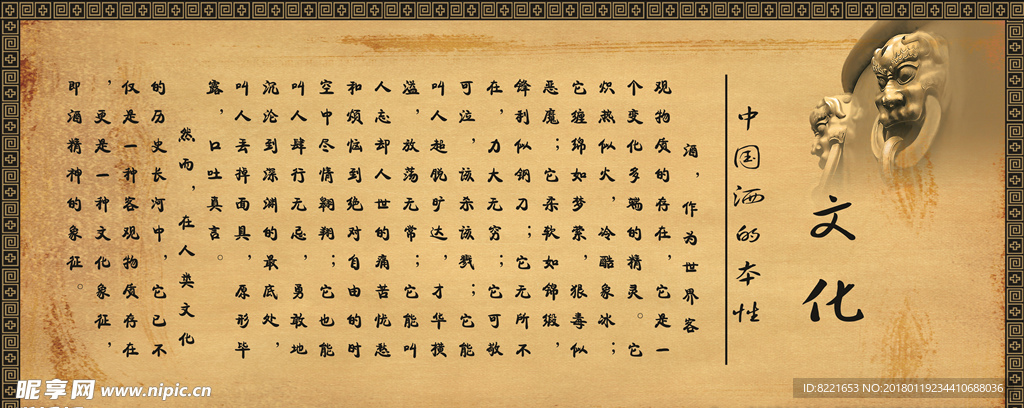 文化
中国酒的本性
酒，作为世界客
观物质的存在，它是一
个变化多端的精灵。它
炽热似火，冷酷象冰；
它缠绵如梦萦，狠毒似
恶魔；它柔软如锦缎，
锋利似钢刀；它无所不
在，力大无穷；它可敬
可泣，该示该戮；它能
叫人超脱旷达，才华横
溢，放荡无常；它能叫
人忘却人世的痛苦忧愁
和烦恼到绝对自由的时
空中尽情翱翔；它也能
叫人肆行无忌，勇敢地
沉沦到深渊的最底处，
叫人丢掉面具，原形毕
露，口吐真言。
然而，在人类文化
的历史长河中，它已不
仅是一种客观物质存在
，更是一种文化象征，
即酒精神的象征。
昵享网 www.nipic.cn
ID:8221653 NO:20180119234410688036